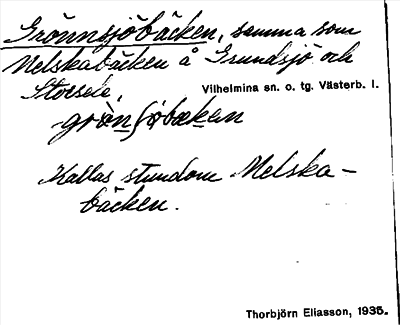 Grönnsjöbäcken, samma som
Melskabäcken å Grundsjö och
Storsele,
Vilhelmina sn. o. tg. Västerb. l.
grönſöbækan
Kallas stundom Melska-
bäcken.
Thorbjörn Eliasson, 1935.